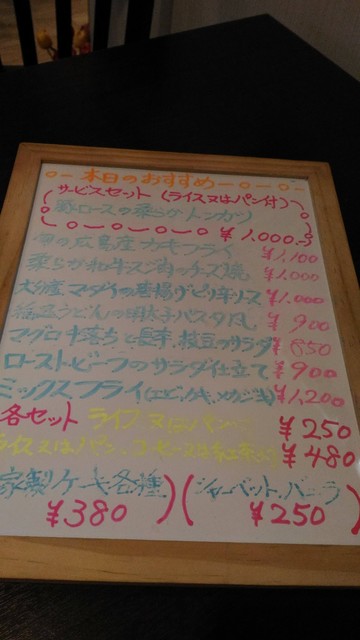 本日のおすすめ
サービスセット(ライス又はパン付)
豚ロースの柔らかトンカツ
¥1,000.-
広島産カキフライ ¥1,100
柔らか和牛スジ肉のチーズ焼 ¥1,000
大分産マダイの唐揚げピリ辛ソース ¥1,000
稲庭うどんの明太子パスタ風 ¥900
マグロ中落ちと長芋、枝豆のサラダ ¥850
ローストビーフのサラダ仕立て ¥900
ミックスフライ(エビ、カキ、メカジキ) ¥1,200
各セット ライス又はパン ¥250
ライス又はパン、コーヒー又は紅茶 ¥480
家製ケーキ各種 ¥380
シャーベット、バニラ ¥250